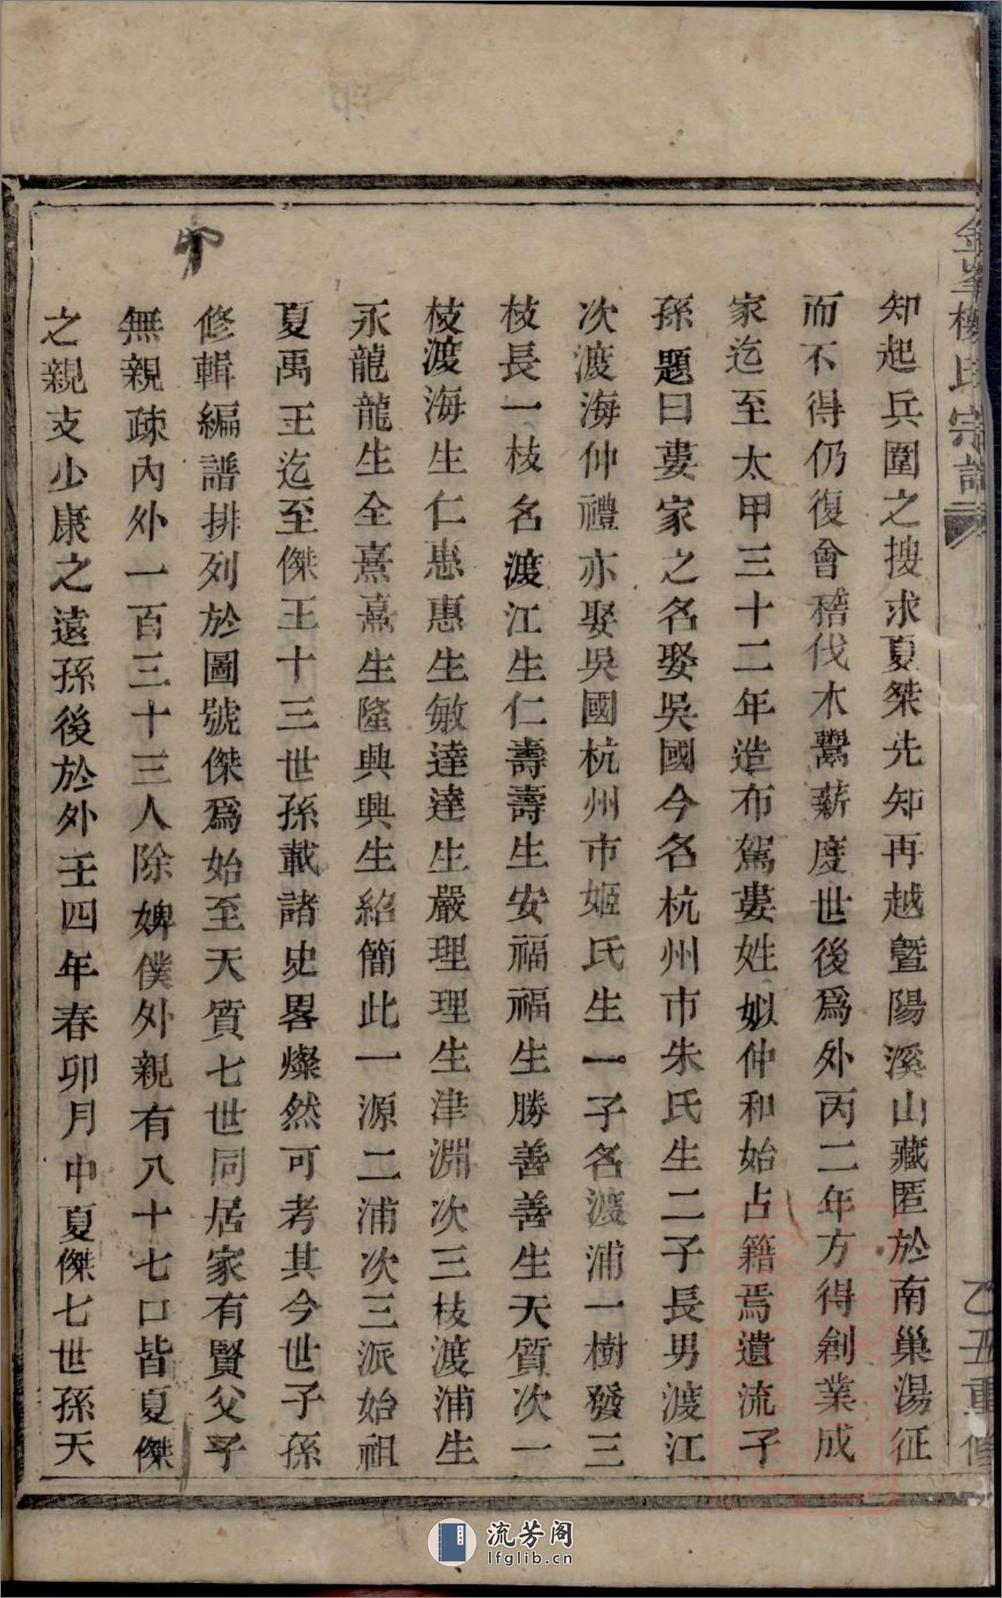 知起兵圍之搜求夏桀先知再越暨陽溪山藏匿於南巢湯征
而不得仍復會稽伐木鬻薪度世後爲外丙二年方得創業成
家迄至太甲三十二年造布駕婁姓姒仲和始占籍焉遺流子
孫題曰婁家之名娶吳國今名杭州市朱氏生二子長男渡江
次渡海仲禮亦娶吳國杭州市姬氏生一子名渡浦一樹發三
枝長一枝名渡江生仁壽壽生安福福生勝善善生天質次一
枝渡海生仁惠惠生敏達達生嚴理理生津淵次三枝渡浦生
永龍龍生全熹熹生隆興興生紹簡此一源二浦次三派始祖
夏禹王迄至傑王十三世孫載諸史畧燦然可考其今世子孫
修輯編譜排列於圖號傑爲始至天質七世同居家有賢父子
無親疎內外一百三十三人除婢僕外親有八十七口皆夏傑
之親支少康之遠孫後於外壬四年春卯月中夏傑七世孫天
金峯樓氏宗譜
乙丑重修
流芳阁
lfglib.cn